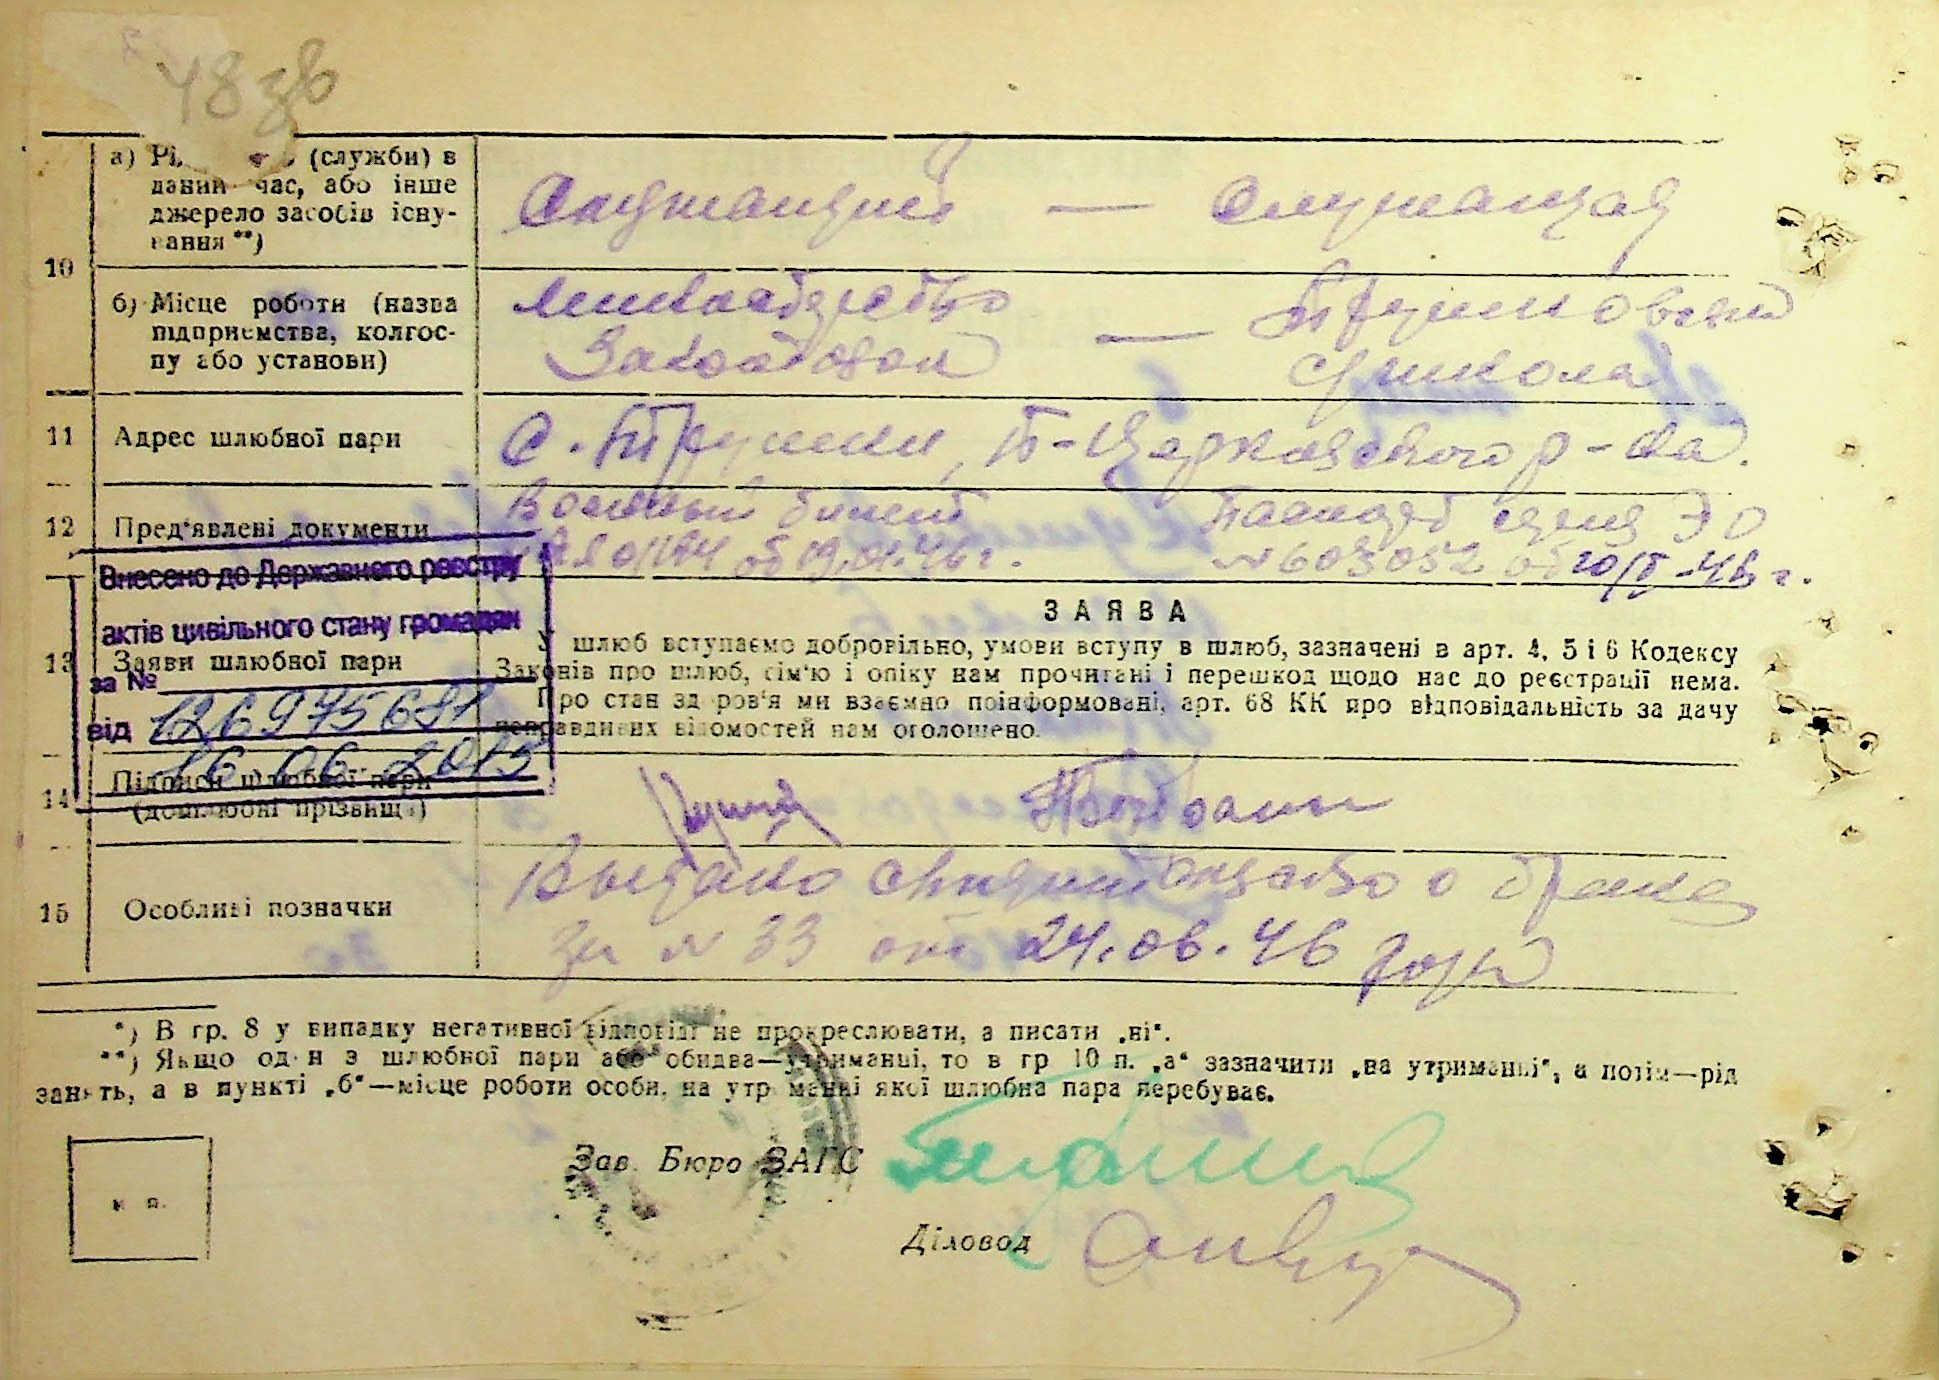 48 зв
а) (служби) в
даний час, або інше
джерело засобів існу-
вання **)
Служащий — Служащая
10
б) Місце роботи (назва
підприємства, колгос-
пу або установи)
—
школа
11 Адрес шлюбної пари
с. Трушки, Б-Церковского р-на.
12 Пред'явлені документи
Военный билет
от 19.01.46 г.
Паспорт серия ЭО
№ 603052 от 20/V-46 г.
Внесено до Державного реєстру
актів цивільного стану громадян
за №
126975681
від 16.06.2015
13 Заяви шлюбної пари
ЗАЯВА
У шлюб вступаємо добровільно, умови вступу в шлюб, зазначені в арт. 4, 5 і 6 Кодексу
Законів про шлюб, сім'ю і опіку нам прочитані і перешкод щодо нас до реєстрації нема.
Про стан здоров'я ми взаємно поінформовані, арт. 68 КК про відповідальність за дачу
неправдивих відомостей нам оголошено.
14 Підписи шлюбної пари
(дошлюбні прізвища)
15 Особливі позначки
Выдано свидетельство о браке
за № 33 от 24.06.46 года
*) В гр. 8 у випадку негативної відповіді не прокреслювати, а писати „ні“.
**) Якщо один з шлюбної пари або обидва—утриманці, то в гр 10 п. „а“ зазначити „на утриманні“, а потім—рід
занять, а в пункті „б“—місце роботи особи, на утриманні якої шлюбна пара перебуває.
м. п.
Зав. Бюро ЗАГС
Діловод